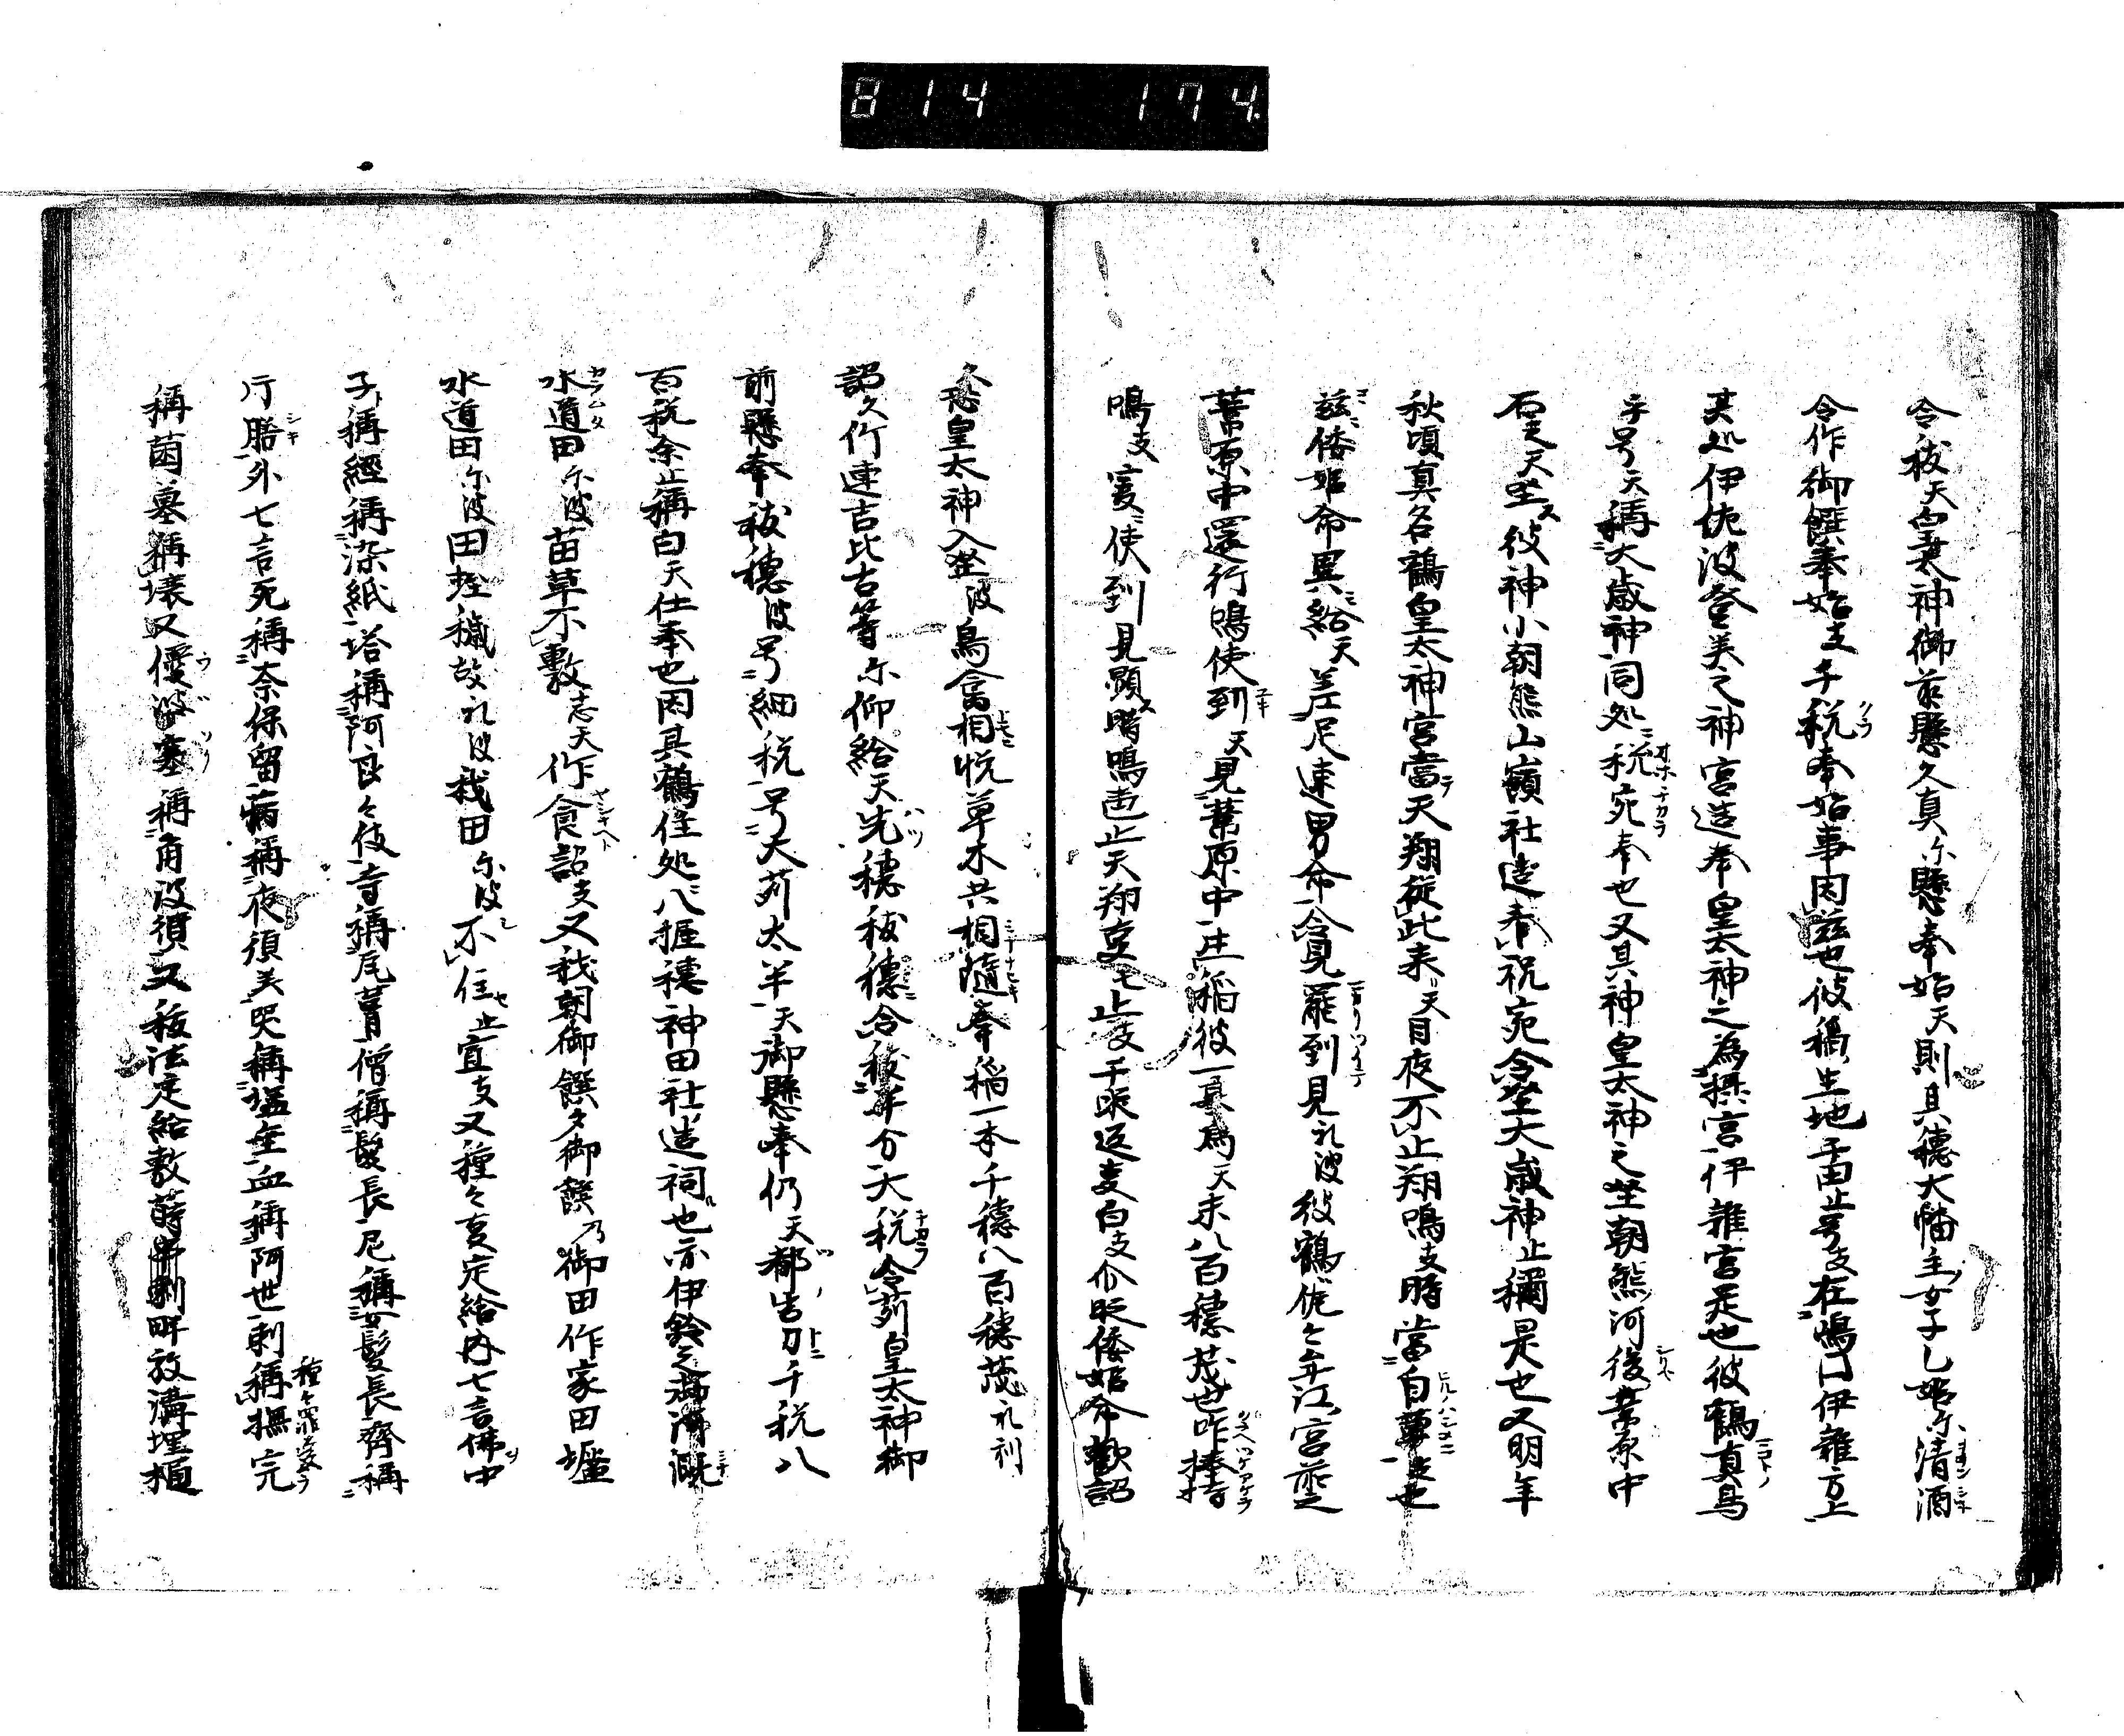 814 174
令抜天皇太神御前懸久真尓懸奉始天則其穂大幡主女子乙姫尓清酒
令作御饌奉始支千税奉始事因茲也彼稲生地千田止号支在嶋国伊雑方上
其処伊佐波登美之神宮造奉皇太神之為摂宮伊雑宮是也彼鶴真鳥
乎号天称大歳神同処税宛奉也又其神皇太神之坐朝熊河後葦原中
石尓天坐彼神小朝熊山嶺社造奉祝宛令坐大歳神止称是也又明年
秋頃真名鶴皇太神宮當天翔従北来天日夜不止翔鳴支時當白昼支也
茲倭姫命異給天差足速男命令見罷到見礼波彼鶴佐々牟江宮前之
葦原中還行鳴使到天見葦原中生稲彼一基為天末八百穂茂也咋捧持
鳴支爰使到見顕時鳴声止天翔支毛止支于時返事白支尓時倭姫命歓詔
久恐皇太神入坐波鳥禽相悦草木共相随奉稲一本千穂八百穂茂礼利
詔久竹連吉比古等尓仰給天先穂抜穂令抜半分大税令苅皇太神御
前懸奉抜穂波号細税号大苅太半天御懸奉仍天都告刀千税八
百税余止称白天仕奉也因其鶴住処八握穂神田社造祠也亦伊鈴之御溝漑
水道田尓波苗草不敷志天作食詔支又我朝御饌夕御饌乃御田作家田堰
水道田尓波田蛭穢故礼波我田尓波不住止宣支又種々事定給内七言佛中
子称経称染紙塔称阿良々伎寺称瓦葺僧称髪長尼称女髪長斎称
片膳外七言死称奈保留病称夜須美哭称塩垂血称阿世剰称撫宍
称菌墓称壌又優婆塞称角波須又祓法定給敷蒔串刺畔放溝埋樋